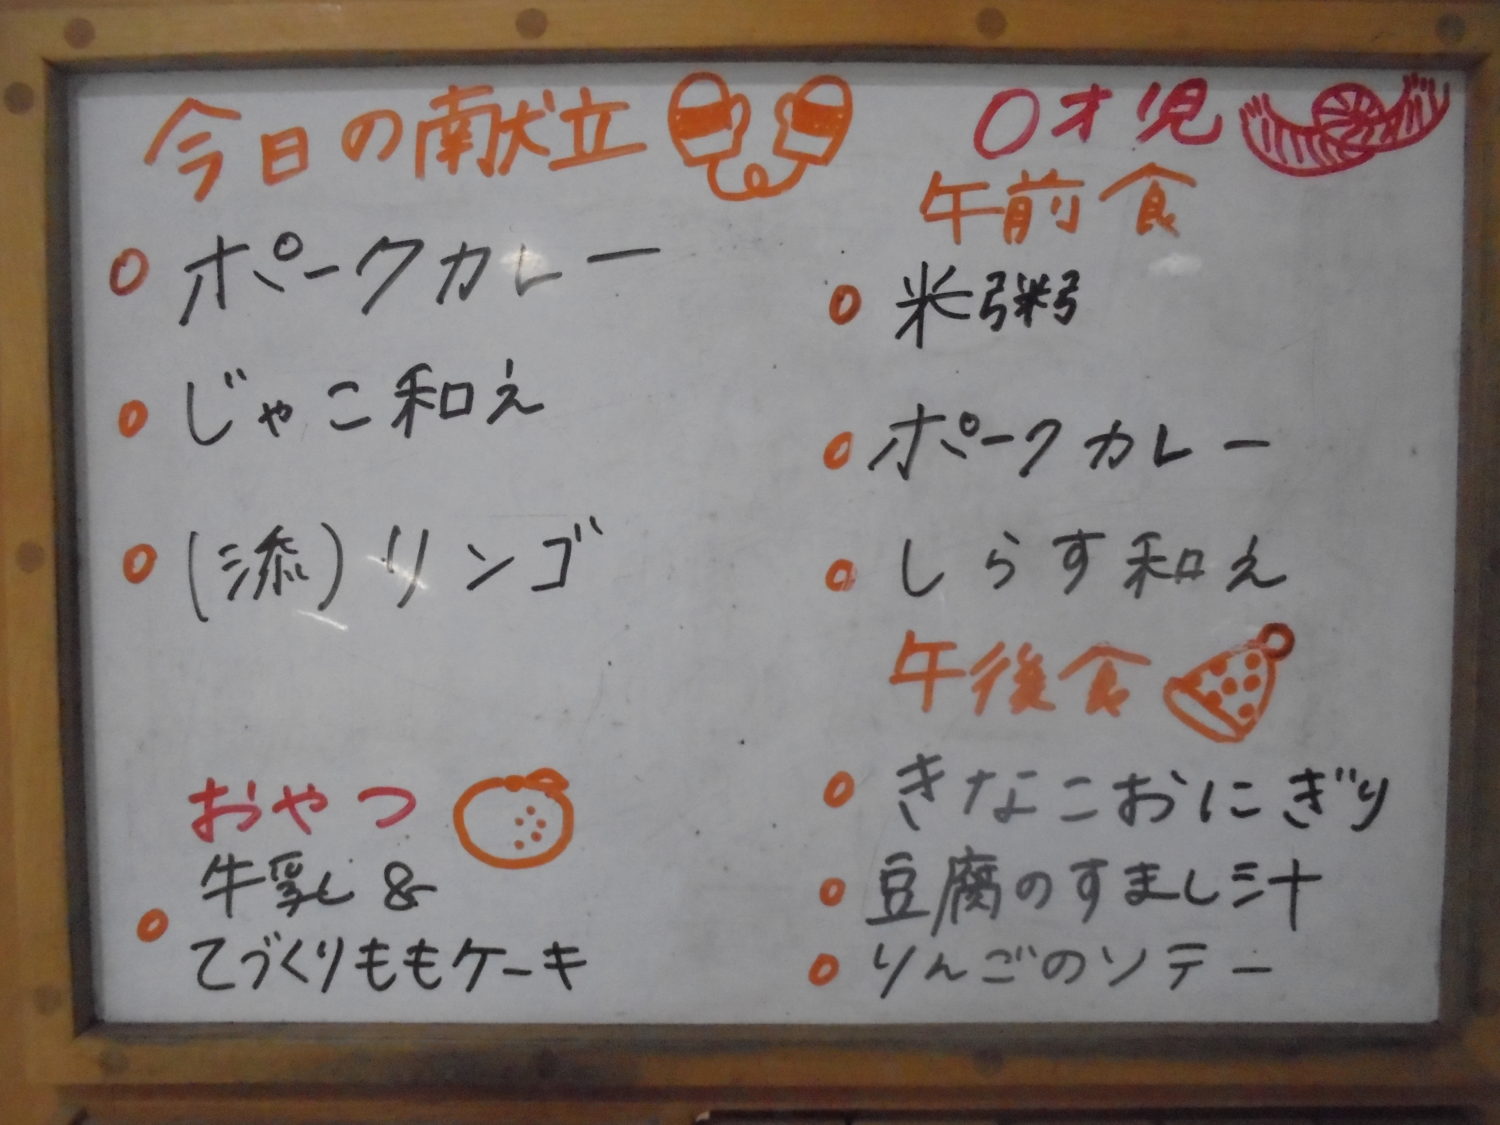 今日の献立
ポークカレー
じゃこ和え
(添)リンゴ
おやつ
牛乳&
てづくりももケーキ
0才児
午前食
米粥
ポークカレー
しらす和え
午後食
きなこおにぎり
豆腐のすまし汁
りんごのソテー